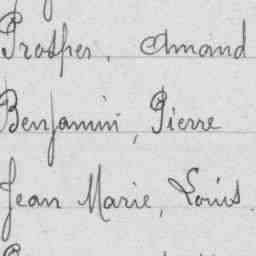 Prosper, Amand
Benjamin, Pierre
Jean Marie, Louis.